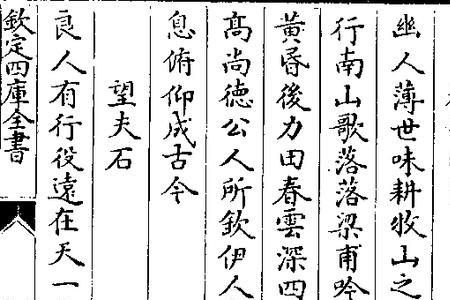 幽人薄世味耕牧山之
行南山歌落落梁甫吟
黄昏後力田春雲深四
髙尚徳公人所欽伊人
息俯仰成古今
望夫石
良人有行役逺在天一
欽定四庫全書